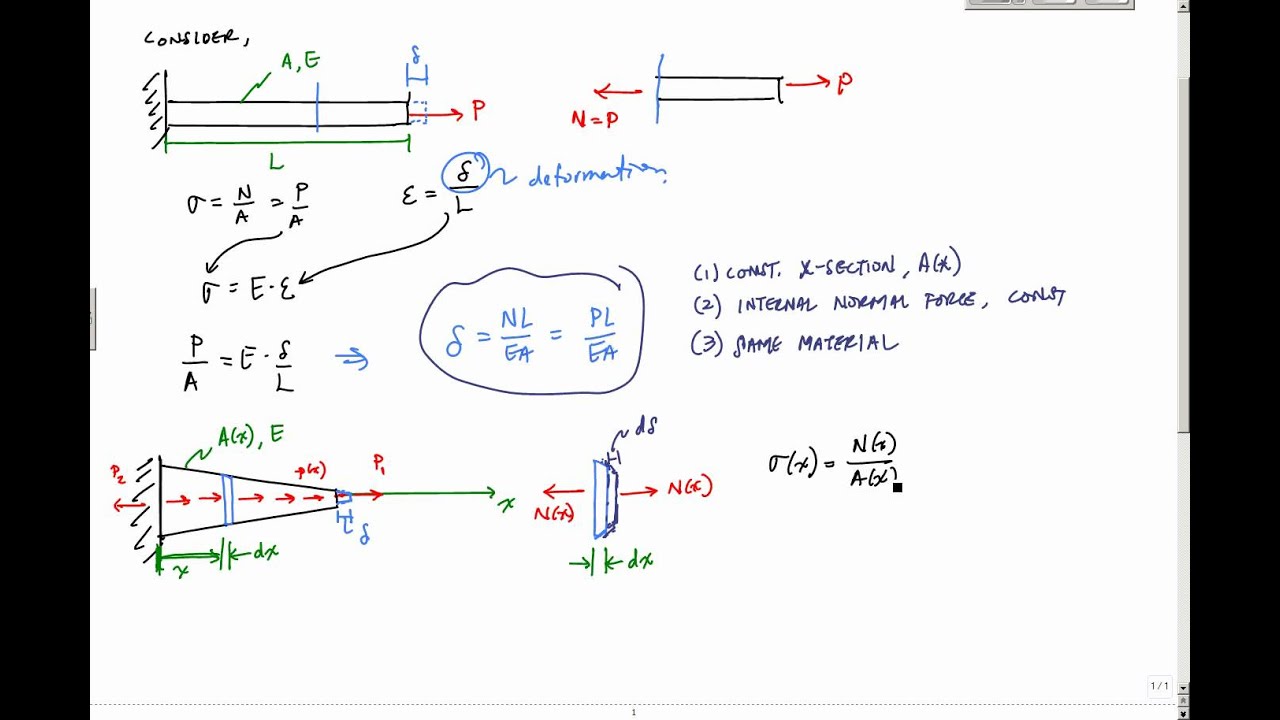 CONSIDER,
A, E
δ
P
L
N = P
P
σ = N/A = P/A
ε = δ/L
deformation.
σ = E · ε
P/A = E · δ/L ⇒
δ = NL/EA = PL/EA
(1) CONST. X-SECTION, A(x)
(2) INTERNAL NORMAL FORCE, CONST
(3) SAME MATERIAL
A(x), E
P₂
P₁
x
δ
x
dx
dδ
N(x)
N(x)
dx
σ(x) = N(x)/A(x)
1/1
1